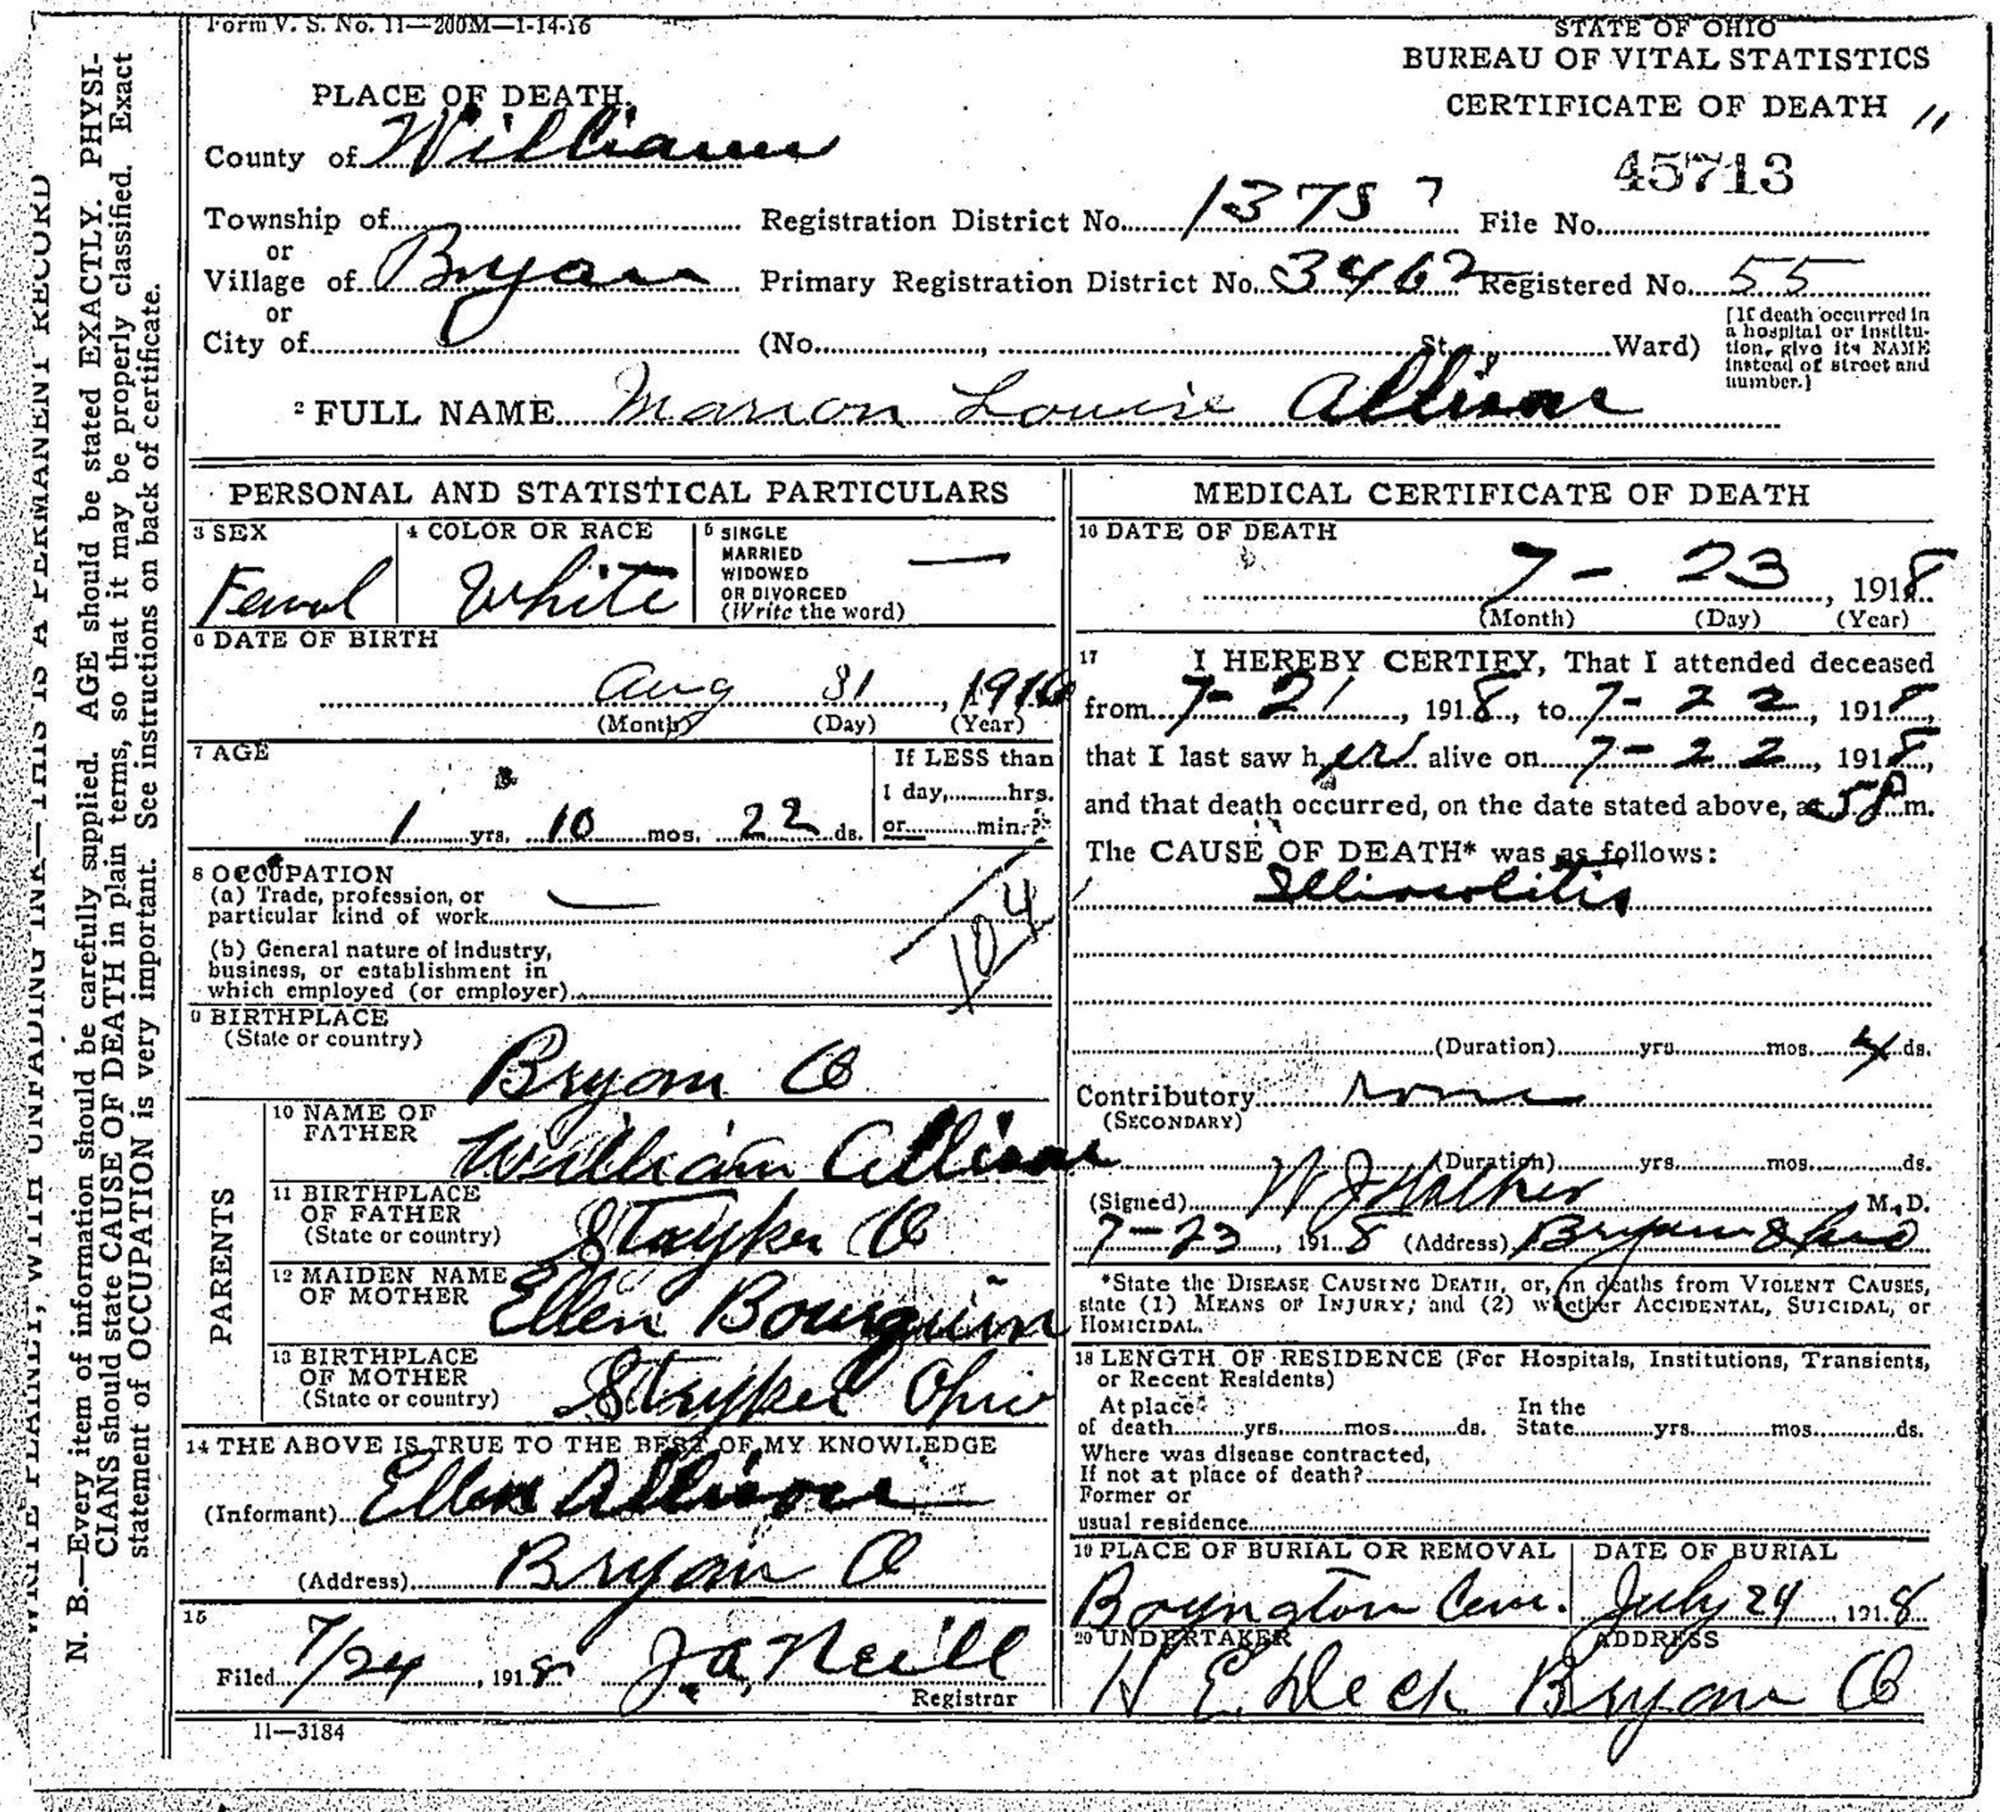 Form V. S. No. 11—200M—1-14-16
STATE OF OHIO
BUREAU OF VITAL STATISTICS
CERTIFICATE OF DEATH 11
45713
PLACE OF DEATH.
County of Williams
Township of Registration District No. 1375 File No.
or
Village of Bryan Primary Registration District No. 3462 Registered No. 55
or
City of (No. , St. Ward)
[If death occurred in
a hospital or institu-
tion, give its NAME
instead of street and
number.]
2 FULL NAME Marion Louise Allison
PERSONAL AND STATISTICAL PARTICULARS
3 SEX
Femal
4 COLOR OR RACE
White
5 SINGLE
MARRIED
WIDOWED
OR DIVORCED
(Write the word)
—
6 DATE OF BIRTH
Aug 31, 1916
(Month) (Day) (Year)
7 AGE
1 yrs. 10 mos. 22 ds.
If LESS than
1 day, hrs.
or min.?
8 OCCUPATION
(a) Trade, profession, or
particular kind of work —
(b) General nature of industry,
business, or establishment in
which employed (or employer)
104
9 BIRTHPLACE
(State or country)
Bryan O
PARENTS
10 NAME OF
FATHER
William Allison
11 BIRTHPLACE
OF FATHER
(State or country)
Stryker O
12 MAIDEN NAME
OF MOTHER
Ellen Bourquin
13 BIRTHPLACE
OF MOTHER
(State or country)
Stryker Ohio
14 THE ABOVE IS TRUE TO THE BEST OF MY KNOWLEDGE
(Informant) Ellen Allison
(Address) Bryan O
15
Filed 7/24, 1918 J. A. Neill
Registrar
11—3184
MEDICAL CERTIFICATE OF DEATH
16 DATE OF DEATH
7 - 23, 1918
(Month) (Day) (Year)
17 I HEREBY CERTIFY, That I attended deceased
from 7-21, 1918, to 7-22, 1918,
that I last saw her alive on 7-22, 1918,
and that death occurred, on the date stated above, at 5 P m.
The CAUSE OF DEATH* was as follows:
Illiocolitis
(Duration) yrs. mos. 4 ds.
Contributory none
(SECONDARY)
(Duration) yrs. mos. ds.
(Signed) W J M. D.
7-23, 1918 (Address) Bryan Ohio
*State the DISEASE CAUSING DEATH, or, in deaths from VIOLENT CAUSES,
state (1) MEANS OF INJURY; and (2) whether ACCIDENTAL, SUICIDAL, or
HOMICIDAL.
18 LENGTH OF RESIDENCE (For Hospitals, Institutions, Transients,
or Recent Residents)
At place In the
of death yrs. mos. ds. State yrs. mos. ds.
Where was disease contracted,
If not at place of death?
Former or
usual residence
19 PLACE OF BURIAL OR REMOVAL
Boynton Cem.
DATE OF BURIAL
July 24, 1918
20 UNDERTAKER ADDRESS
H E. Deck Bryan O
WRITE PLAINLY, WITH UNFADING INK—THIS IS A PERMANENT RECORD
N. B.—Every item of information should be carefully supplied. AGE should be stated EXACTLY. PHYSI-
CIANS should state CAUSE OF DEATH in plain terms, so that it may be properly classified. Exact
statement of OCCUPATION is very important. See instructions on back of certificate.